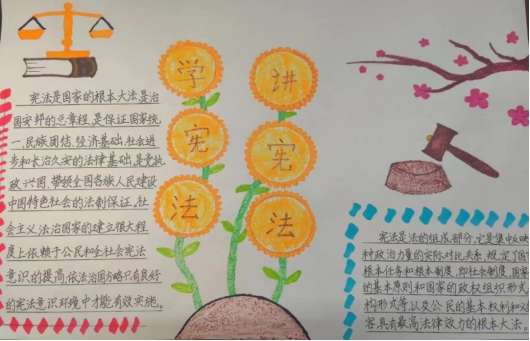 学
宪
法
讲
宪
法
宪法是国家的根本大法,是治
国安邦的总章程,是保证国家统
一、民族团结、经济基础、社会进
步和长治久安的法律基础,是党执
政兴国、带领全国各族人民建设
中国特色社会的法制保证。社
会主义法治国家的建立很大程
度上依赖于公民和全社会宪法
意识的提高,依法治国方略只有良好
的宪法意识环境中才能有效实施。
宪法是法的组成部分,它是集中反映
种政治力量的实际对比关系,规定了国
根本任务和根本制度,即社会制度、国家
的基本原则和国家的政权组织形式
构形式等,以及公民的基本权利和义
容,具有最高法律效力的根本大法。